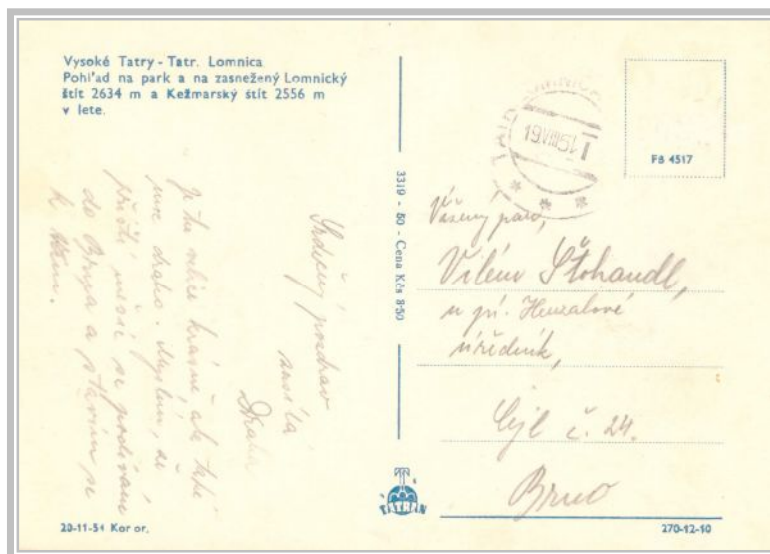 Vysoké Tatry - Tatr. Lomnica
Pohľad na park a na zasnežený Lomnický
štít 2634 m a Kežmarský štít 2556 m
v lete.
Je tu velice krásně, ale také
moc draho. Myslím, že
příští měsíc se podívám
do Brna a stavím se
k Vám.
Srdečný pozdrav
zasílá
3319 - 50 - Cena Kčs 8·50
FB 4517
Vážený pan,
Vilém Štohandl,
u pí. Henzalové
úředník,
Cejl č. 24.
Brno
TATRAN
20-11-54 Kor or.
270-12-10